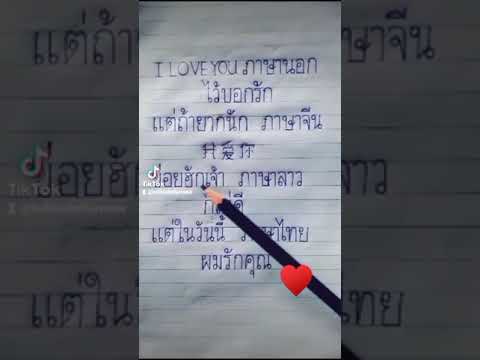 I LOVE YOU ภาษานอก
ไว้บอกรัก
แต่ถ้ายากนัก ภาษาจีน
爱
ข่อยฮักเจ้า ภาษาลาว
แต่ในวันนี้ ภาษาไทย
ผมรักคุณ
TikTok
TikTok